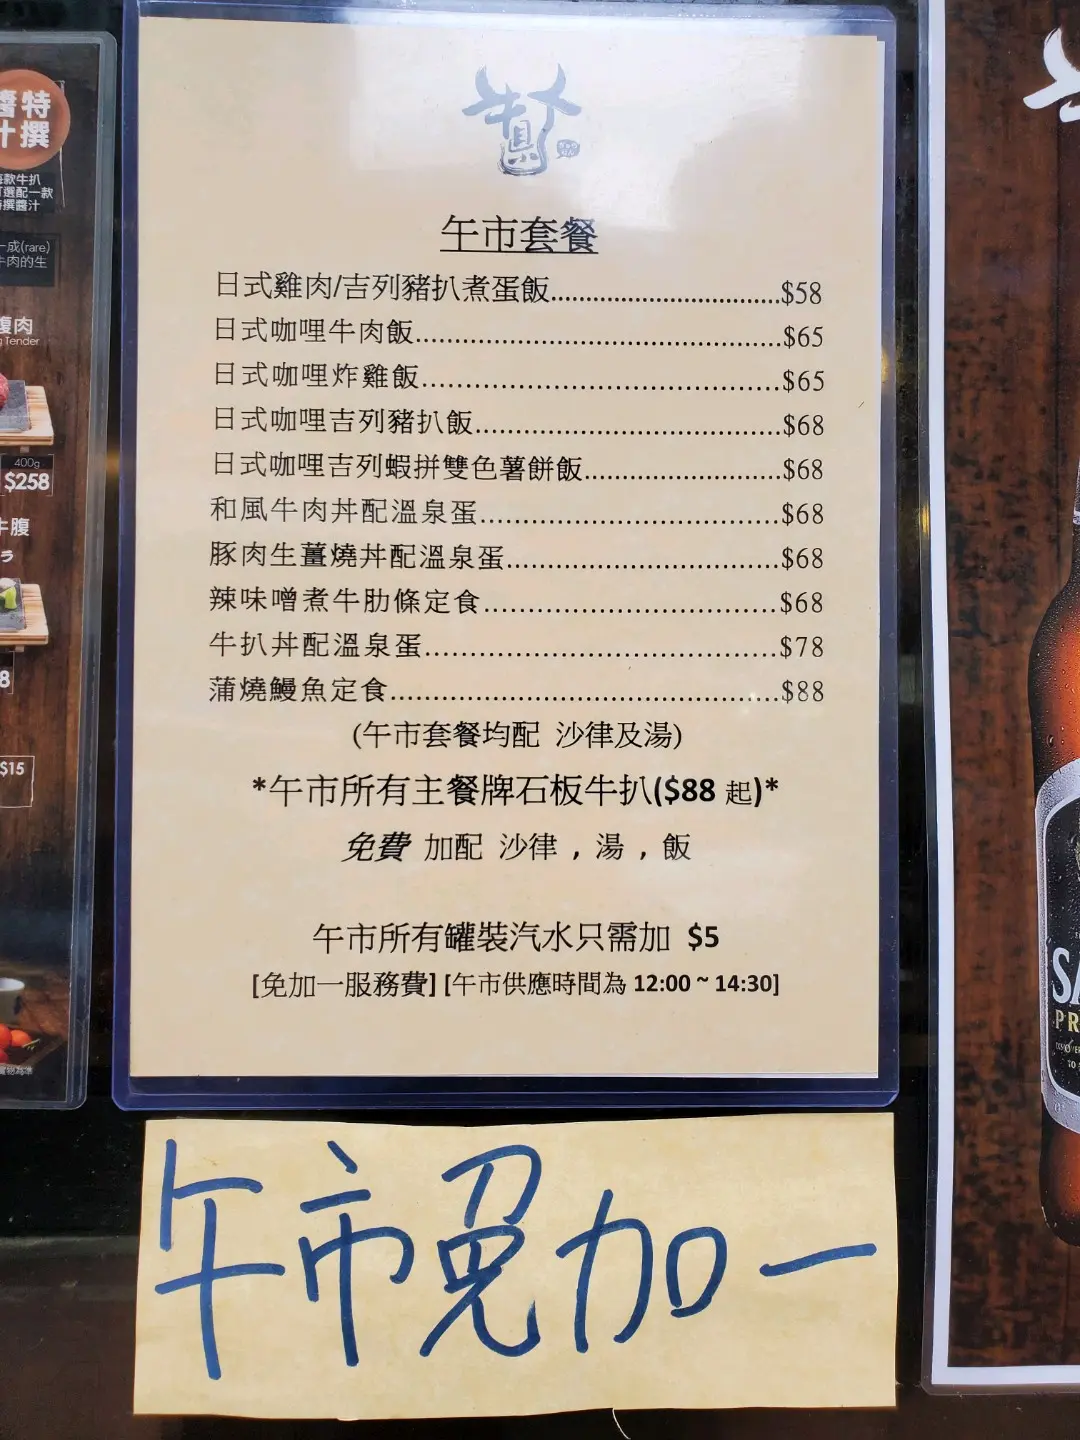 醬特
汁撰
每款牛扒
可選配一款
特撰醬汁
一成(rare)
牛肉的生
腹肉
g Tender
400g
$258
牛腹
ラ
8
$15
實物為準
牛
午市套餐
日式雞肉/吉列豬扒煮蛋飯..............................$58
日式咖哩牛肉飯................................................$65
日式咖哩炸雞飯...............................................$65
日式咖哩吉列豬扒飯........................................$68
日式咖哩吉列蝦拼雙色薯餅飯..........................$68
和風牛肉丼配溫泉蛋.......................................$68
豚肉生薑燒丼配溫泉蛋....................................$68
辣味噌煮牛肋條定食.......................................$68
牛扒丼配溫泉蛋..............................................$78
蒲燒鰻魚定食...................................................$88
(午市套餐均配 沙律及湯)
*午市所有主餐牌石板牛扒($88 起)*
免費 加配 沙律，湯，飯
午市所有罐裝汽水只需加 $5
[免加一服務費] [午市供應時間為 12:00 ~ 14:30]
午市免加一
SA
PR